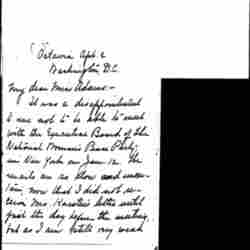 Ontario Apts.
Washington, D.C.
My dear Miss Adams:-
It was a disappointment
to me not to be able to meet
with the Executive Board of the
National Woman's Peace Party
in New York on Jan. 12. The
mails are so slow and uncer-
tain, now that I did not re-
ceive Mrs. Karsten's letter until
past the day before the meeting,
but as I am still very weak